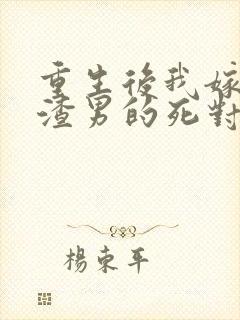 重生後我嫁
渣男的死對
楊東平